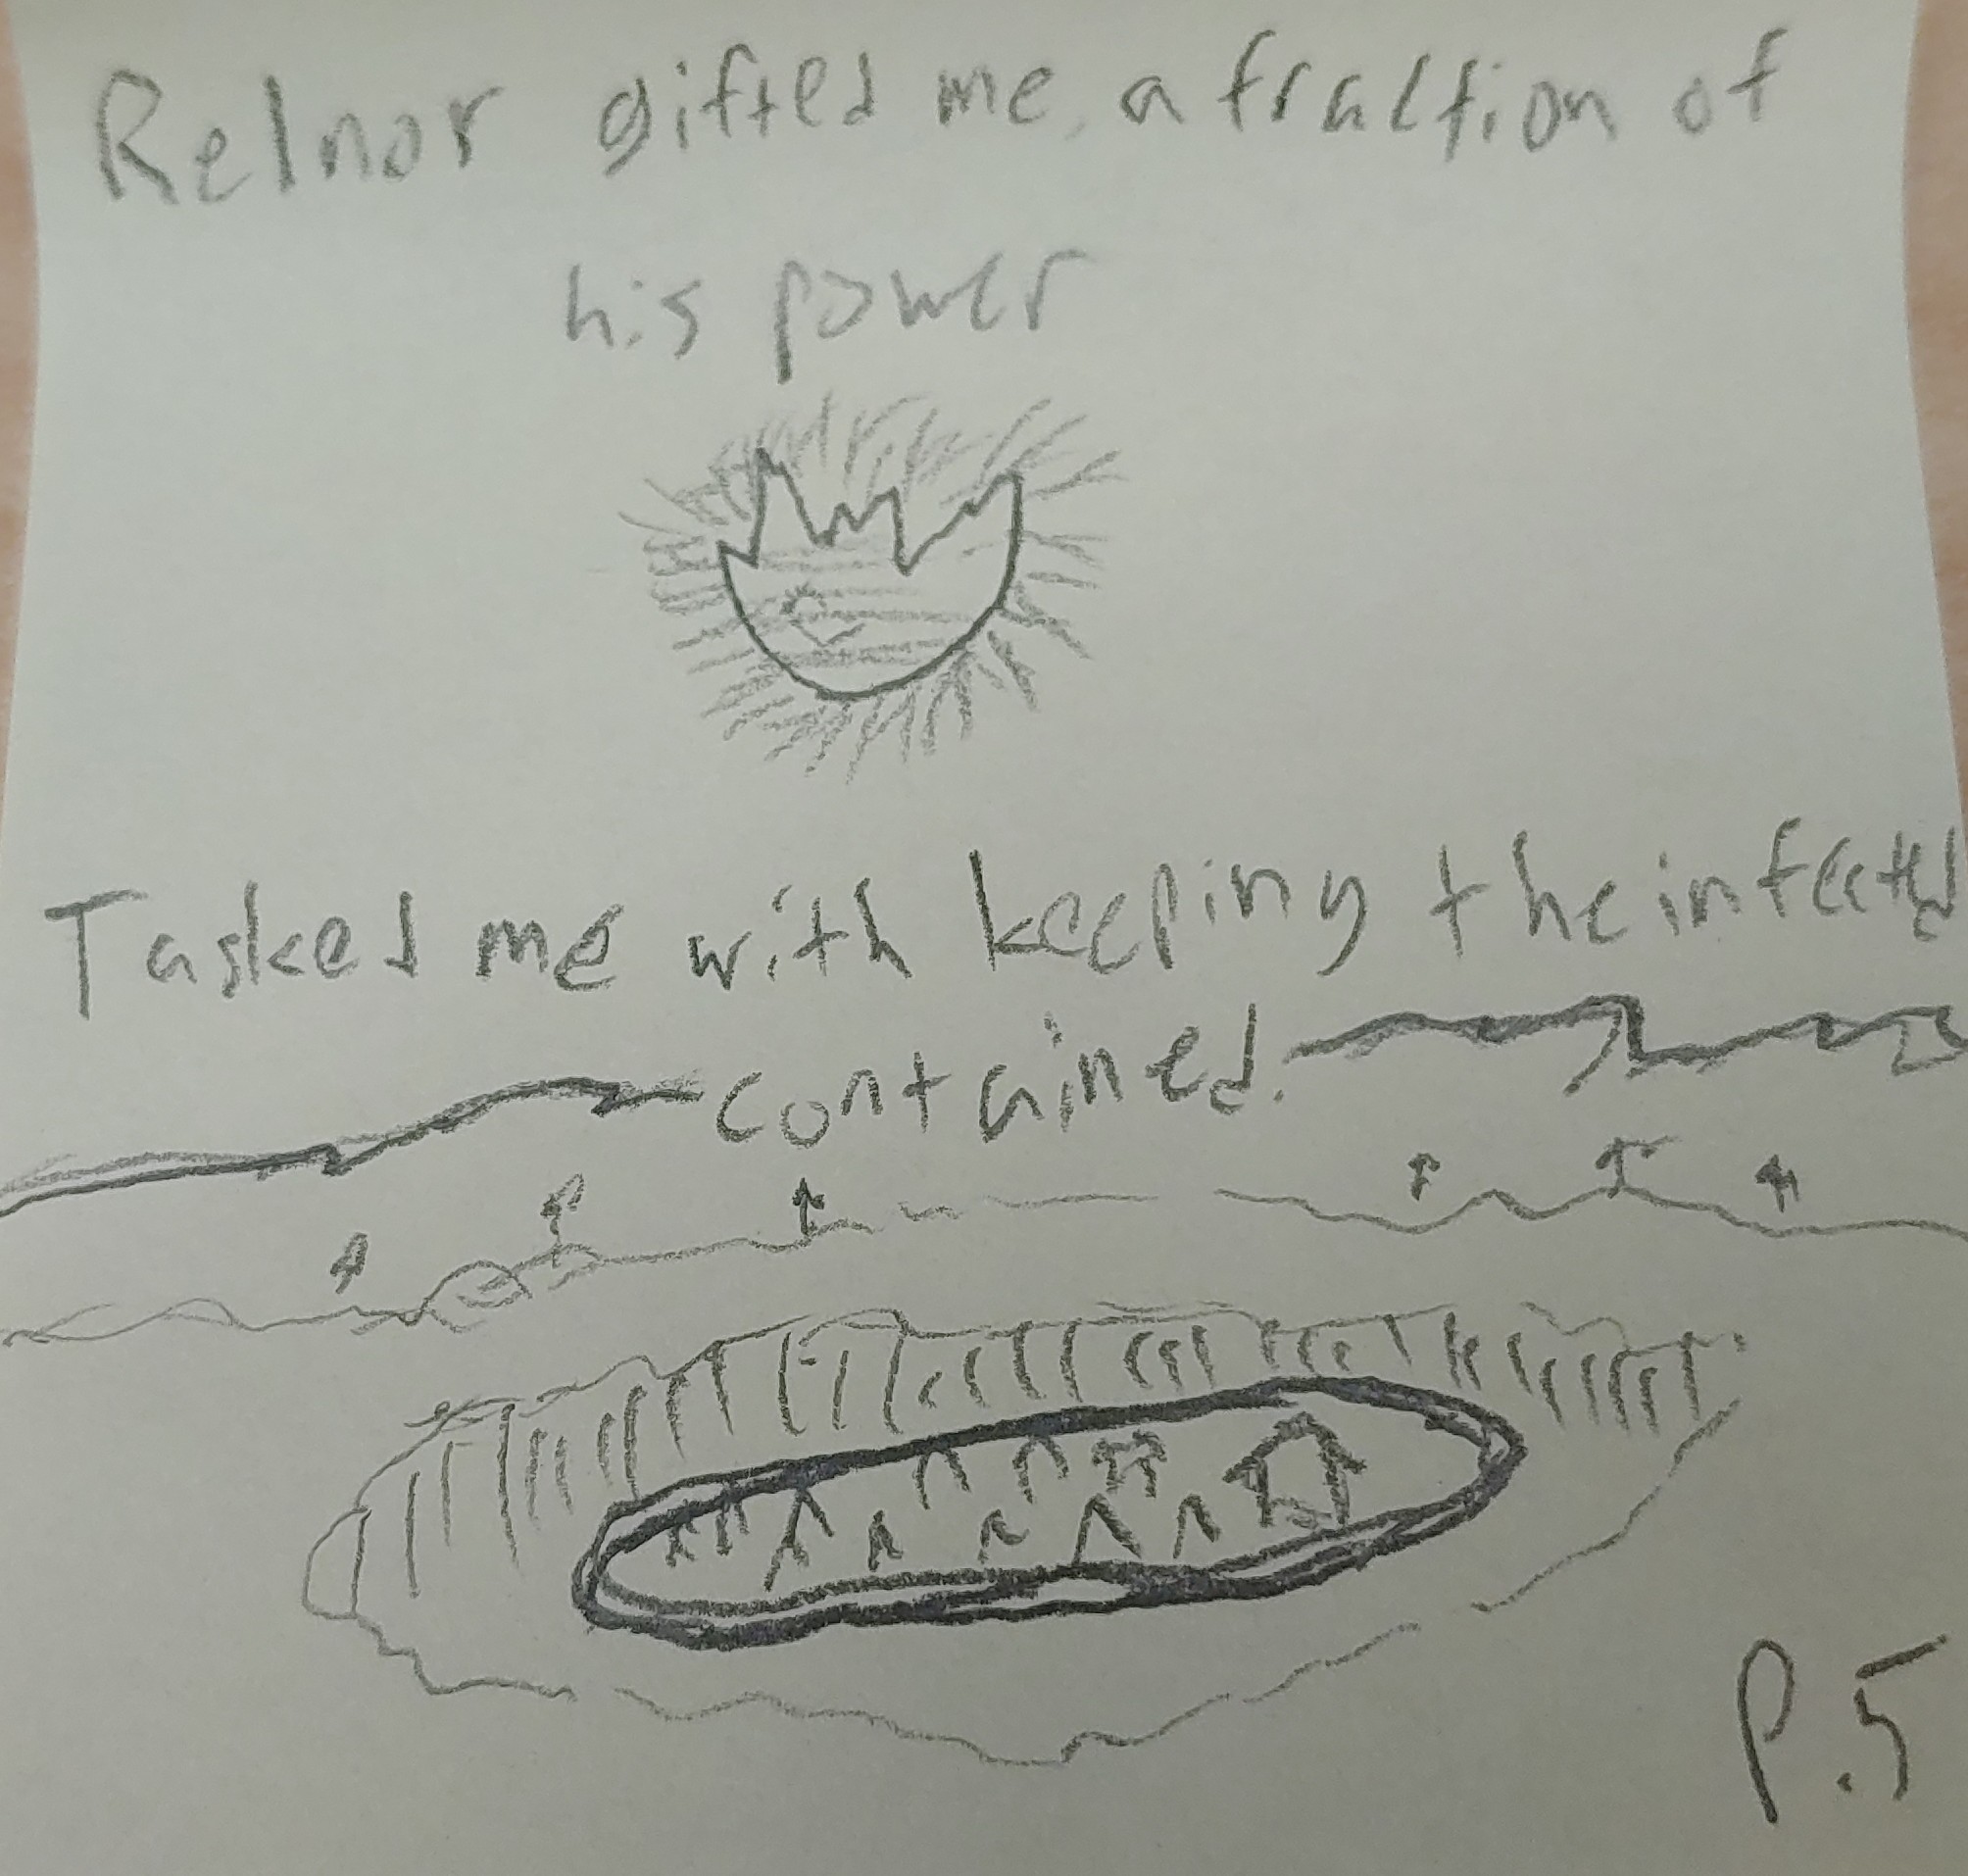 Relnor gifted me, a fraction of
his power
Tasked me with keeping the infected
contained.
P.5